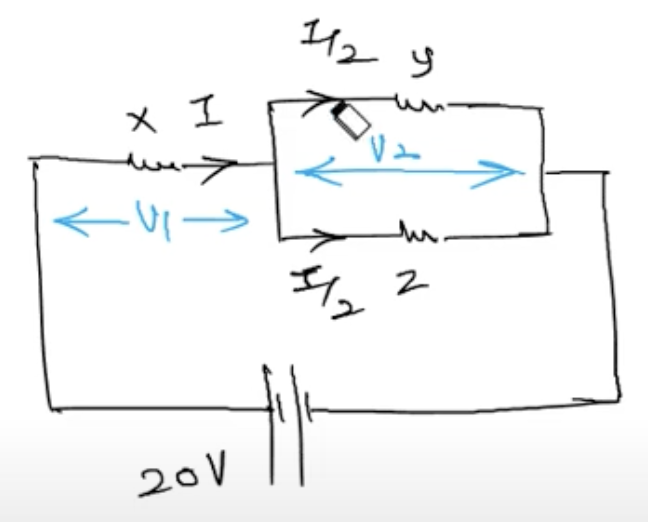 I/2 y
x I
V2
V1
I/2 z
20V